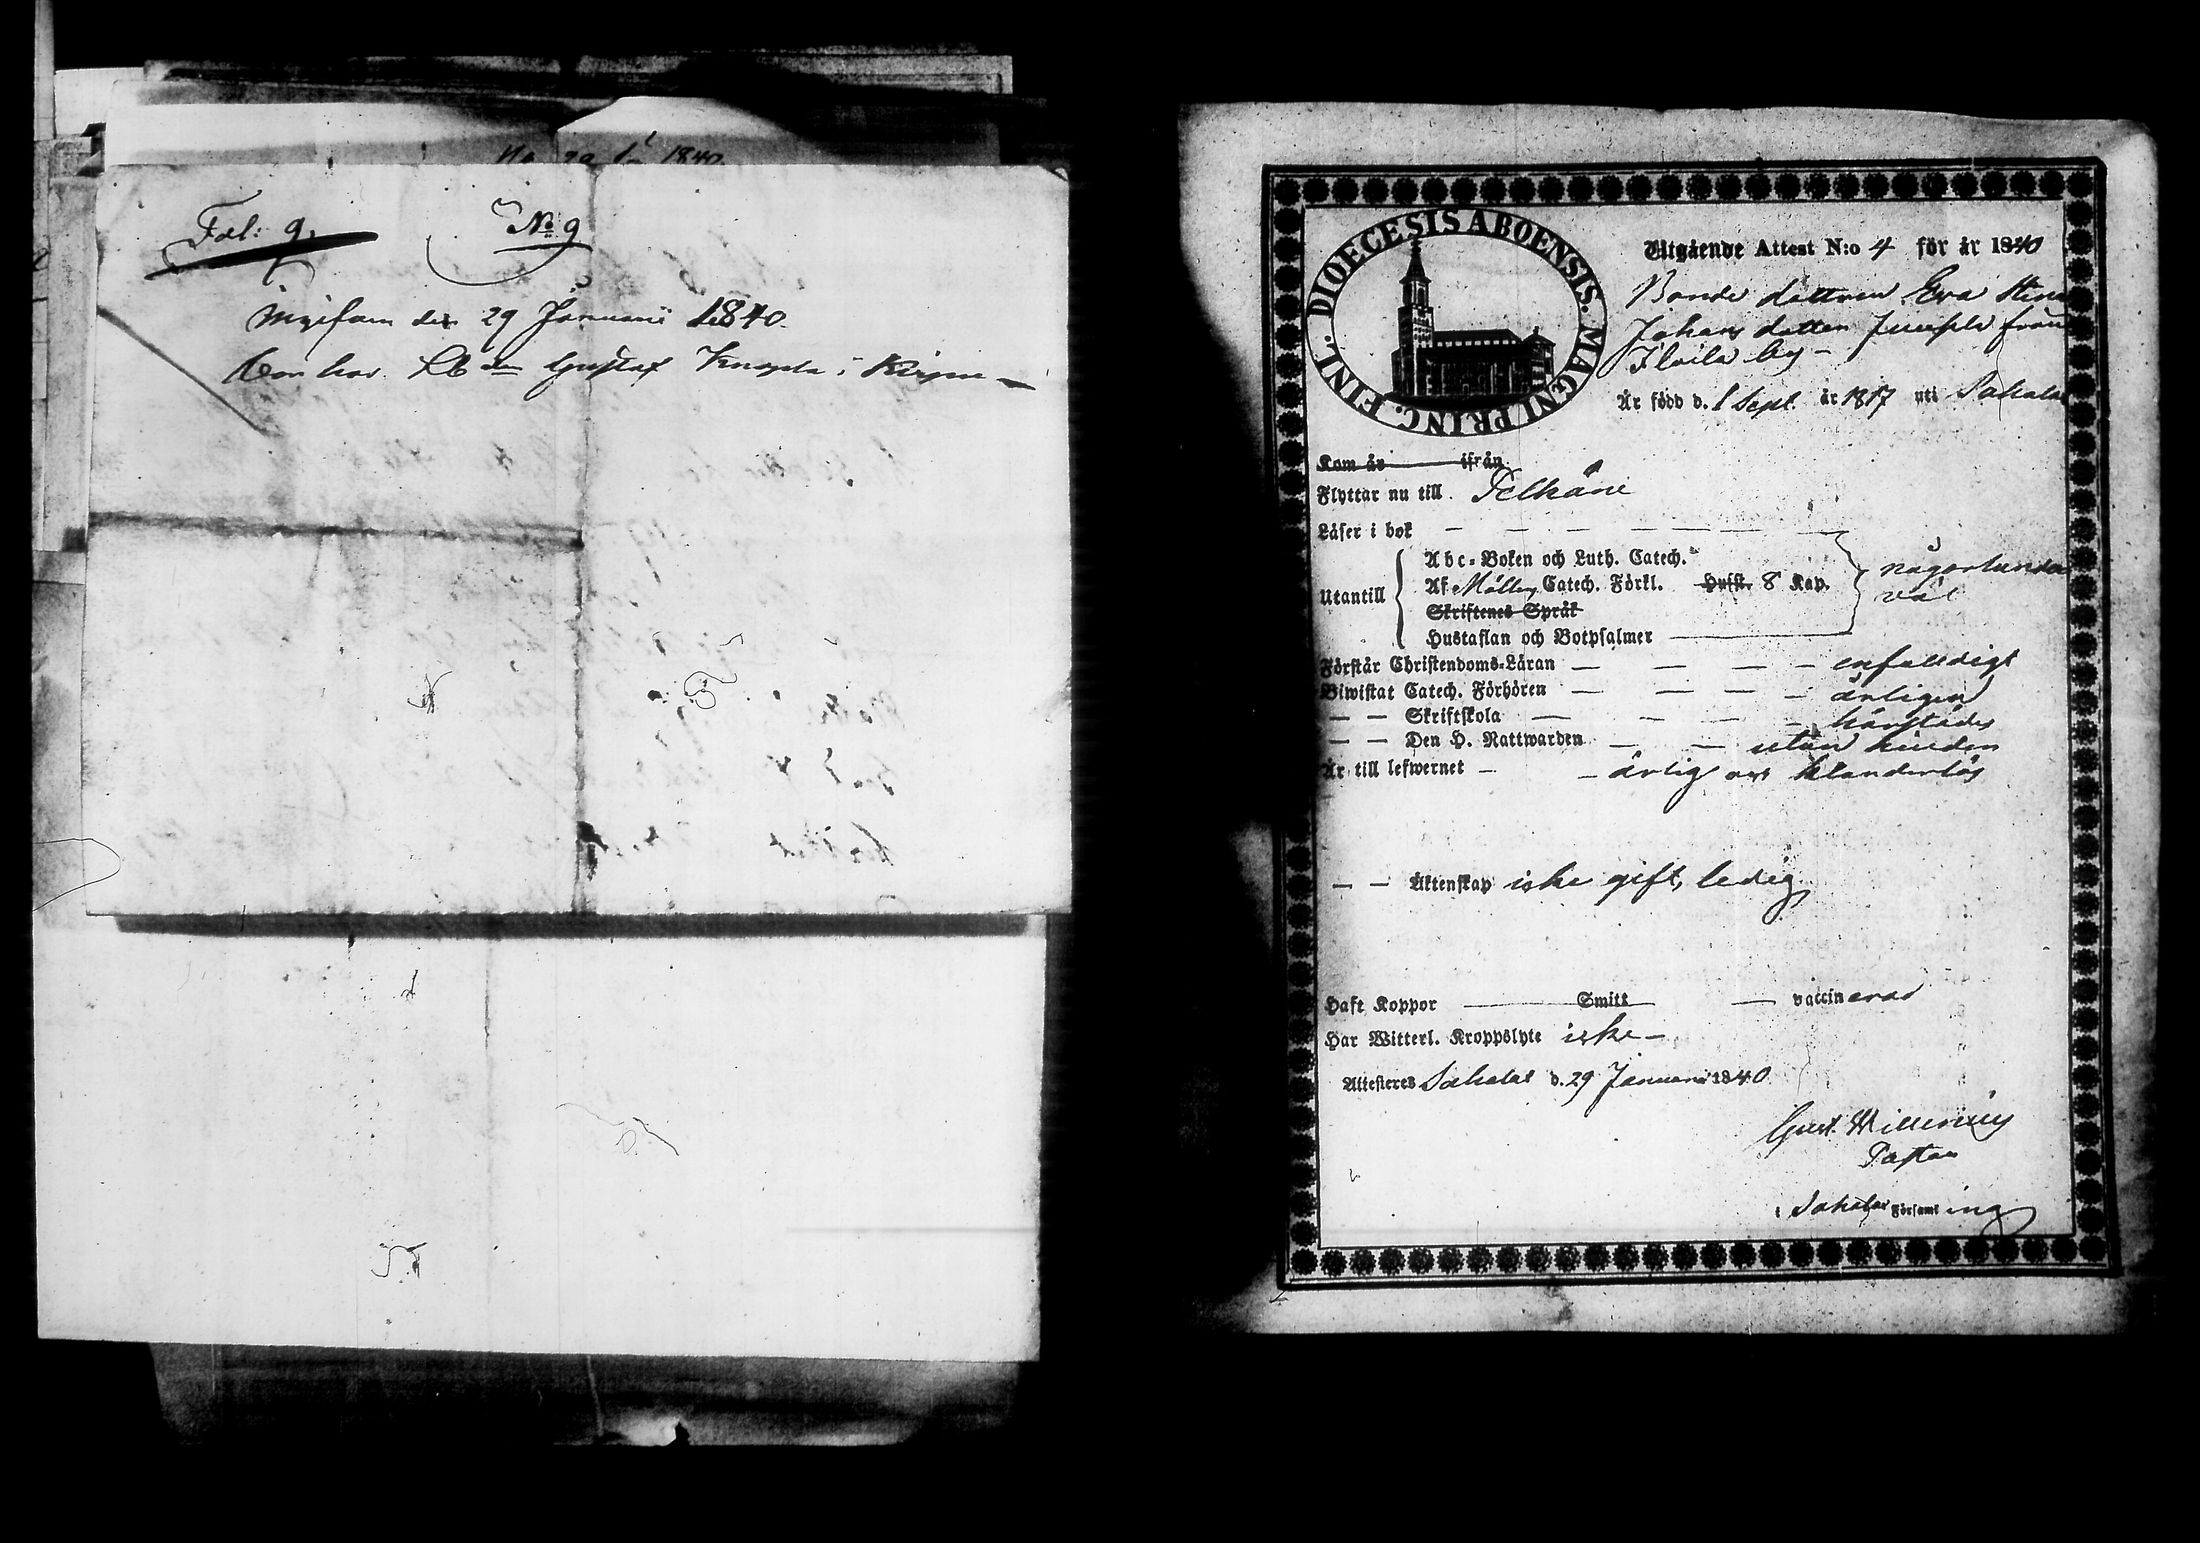 Fol: 9.
No 9
den 29 Januari 1840.
Gustaf i
29 1840
DIOECESIS ABOENSIS. MAGNI PRINC. FINL.
Utgående Attest N:o 4 för år 1840
Bonde dottren Eva Stina
Johans dotter från
by
Är född d. 1 Sept. år 1817 uti Sahalax
Kom år ifrån
Flyttar nu till Pelkäne
Läser i bok
Abc-Boken och Luth. Catech.
Utantill Af Catech. Förkl. Husft. 8 Kap.
Skriftenes Språk
någorlunda
väl
Hustaflan och Botpsalmer
Förstår Christendoms-Läran enfaldigt
Biwistat Catech. Förhören årligen
Skriftskola härstädes
Den H. Nattwarden utan hinder
Är till lefwernet ärlig och klanderlös
Äktenskap icke gift, ledig
Haft Koppor Smitt vaccinerad
Har Witterl. Kroppslyte icke
Attesteras Sahalax d. 29 Januari 1840
Gust. Willenius
Pastor
i Sahalax Församling